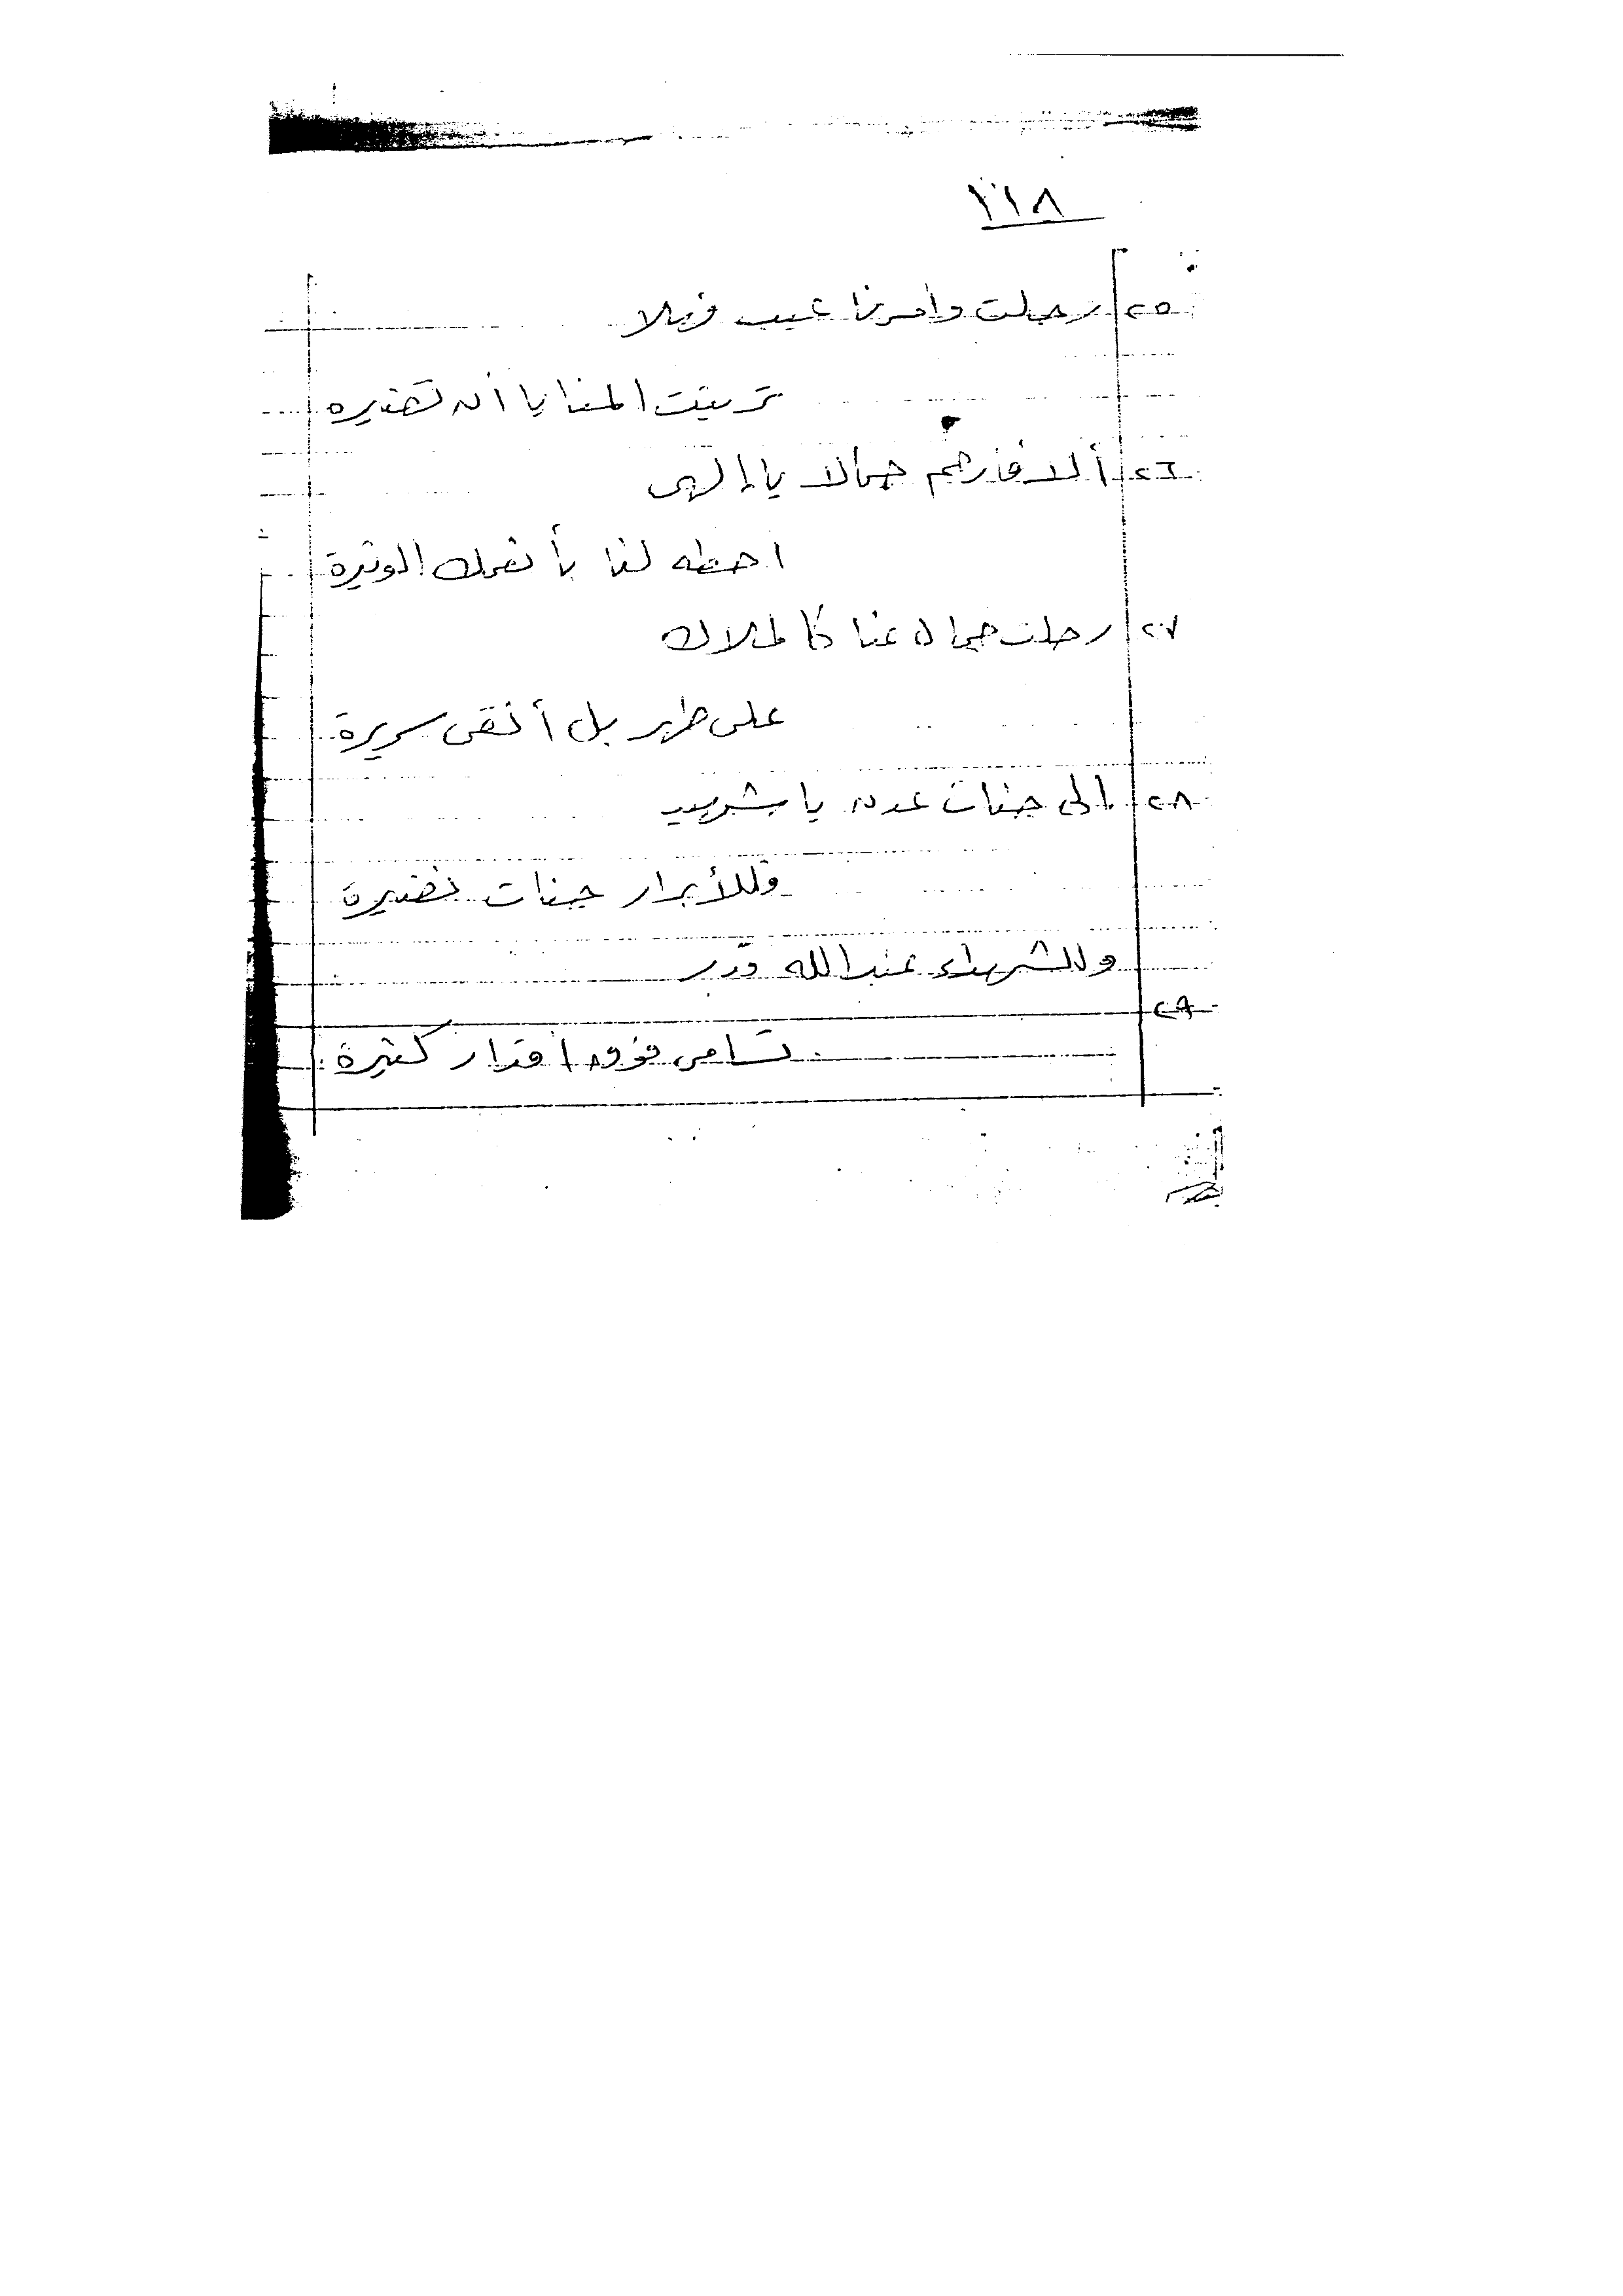 ١١٨
٢٥ رحلت وأمرنا عجب فهلا
تريثت المنايا أن تضيره
٢٦ ألا فارحم جمالا يا إلهى
احطه لنا بأنعمك الوثيرة
٢٧ رحلت جمال عنا كالملاك
على طهر بل أنقى سريرة
٢٨ إلى جنات عدن يا شهيد
وللأبرار جنات نضيرة
وللشهداء عند الله قدر
٢٩
تسامى فوق أقدار كثيرة